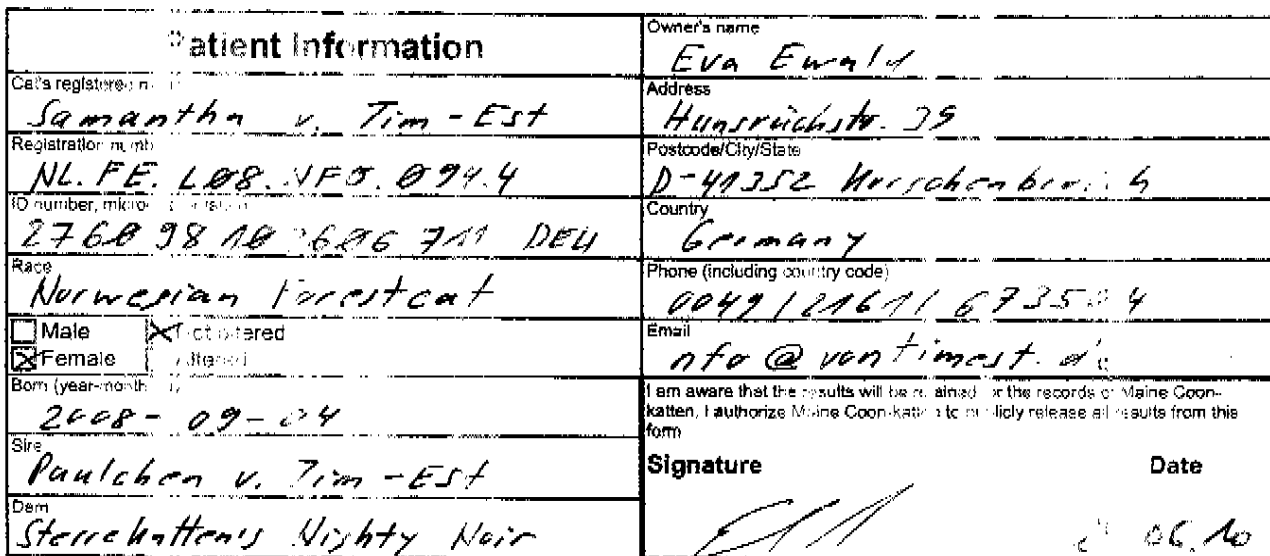 Patient Information
Cat's registered
Samantha v. Tim-Est
Registration numb
NL.FE.LØ8.NFO.Ø94.4
ID number, micro
DEU
Race
Norwegian Forestcat
Male
Not altered
Female
Altered
Born (year-month
2008-09-04
Sire
Paulchen v. Tim-Est
Dam
Nighty Noir
Owner's name
Eva Ewald
Address
Hunsrückstr. 39
Postcode/City/State
D-41352
Country
Germany
Phone (including country code)
0049/2161/
Email
I am aware that the results will be retained for the records of Maine Coon-
katten, I authorize Maine Coon-katten to publicly release all results from this
form
Signature Date
06.10